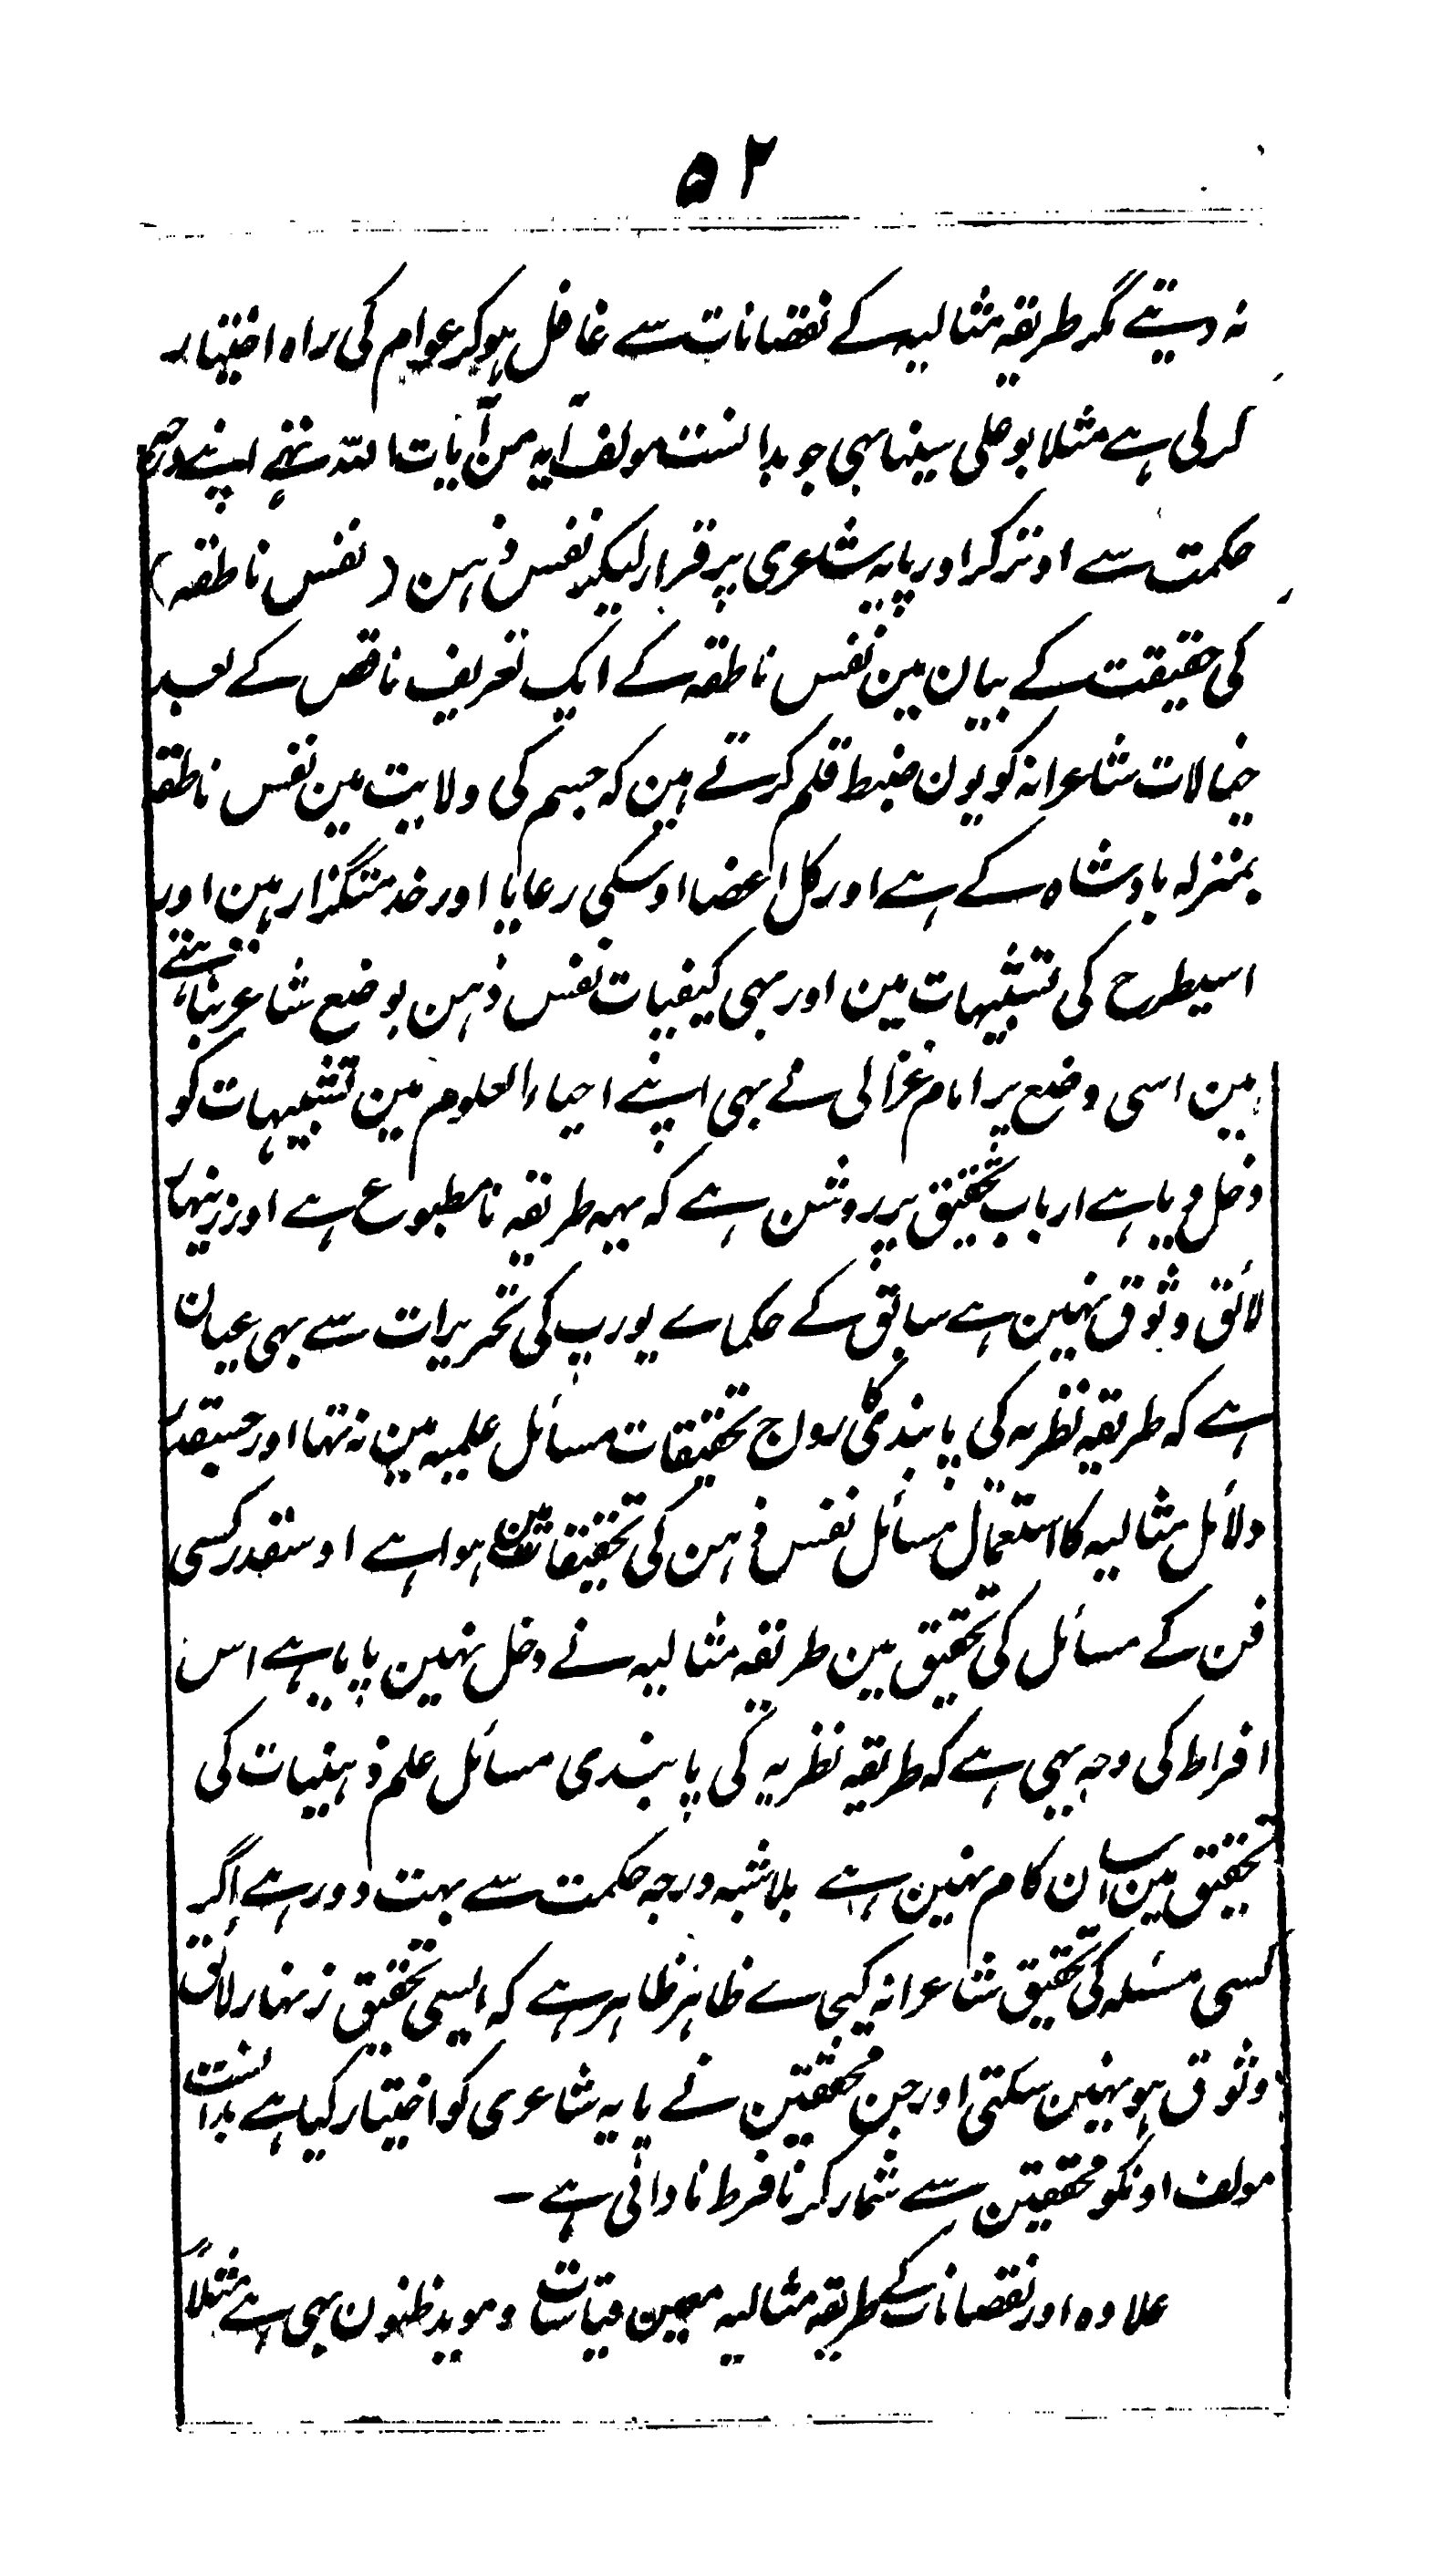 ۵۲
نہ دیتے مگر طریقہ مثالیہ کے نقصانات سے غافل ہوکر عوام کی راہ اختیار
کرلی ہے مثلا بو علی سینا بہی جو بدانست مولف آیہ من آیات اللہ تہے اپنے درجہ
حکمت سے اوتر کر اور پایہ شاعری پر قرار لیکر نفس ذہن (نفس ناطقہ)
کی حقیقت کے بیان مین نفس ناطقہ کے ایک تعریف ناقص کے بعد
خیالات شاعرانہ کو یون ضبط قلم کرتے ہین کہ جسم کی ولایت مین نفس ناطقہ
بمنزلہ بادشاہ کے ہے اور کل اعضا اوسکی رعایا اور خدمتگذار ہین اور
اسیطرح کی تشبیہات مین اور بہی کیفیات نفس ذہن بوضع شاعر بتاتے
ہین اسی وضع پر امام غزالی نے بہی اپنے احیاء العلوم مین تشبیہات کو
دخل دیا ہے ارباب تحقیق پر روشن ہے کہ یہہ طریقہ نامطبوع ہے اور زینہار
لائق وثوق نہین ہے سابق کے حکماے یورپ کی تحریرات سے بہی عیان
ہے کہ طریقہ نظریہ کی پابندی کا رواج تحقیقات مسائل علمیہ مین نہ تہا اور جسقدر
دلائل مثالیہ کا استعمال مسائل نفس ذہن کی تحقیقات مین ہوا ہے اوسقدر کسی
فن کے مسائل کی تحقیق مین طریقہ مثالیہ نے دخل نہین پایا ہے اس
افراط کی وجہ یہی ہے کہ طریقہ نظریہ کی پابندی مسائل علم ذہنیات کی
تحقیق مین آسان کام نہین ہے بلاشبہ درجہ حکمت سے بہت دور ہے اگر
کسی مسئلہ کی تحقیق شاعرانہ کیجی ے ظاہر ظاہر ہے کہ ایسی تحقیق زنہار لائق
وثوق ہو نہین سکتی اور جن محققین نے پایہ شاعری کو اختیار کیا ہے بدانست
مولف اونکو محققین سے شمار کرنا فرط نادانی ہے ۔
علاوہ اور نقصانات کے طریقہ مثالیہ معین قیاسات و موید ظنون بہی ہے مثلاً